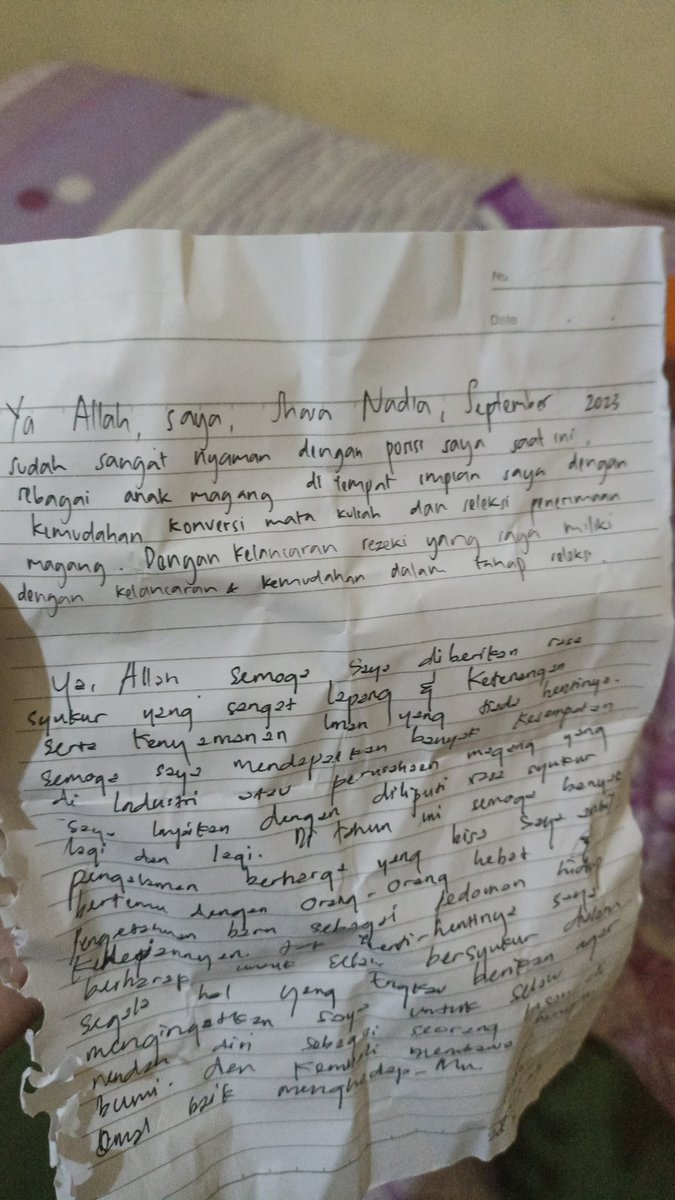 No.
Date
Ya Allah, saya, Shara Nadia, September 2023
sudah sangat nyaman dengan posisi saya saat ini,
sebagai anak magang di tempat impian saya dengan
kemudahan konversi mata kuliah dan seleksi penerimaan
magang. Dengan kelancaran rezeki yang saya miliki
dengan kelancaran & kemudahan dalam tahap seleksi.
Ya, Allah semoga saya diberikan rasa
syukur yang sangat lapang & ketenangan
serta kenyamanan iman yang tiada hentinya.
semoga saya mendapatkan banyak kesempatan
di Industri atau perusahaan magang yang
saya lanjutkan dengan diliputi rasa syukur
lagi dan lagi. Di tahun ini semoga banyak
pengalaman berharga yang bisa saya ambil
bertemu dengan orang-orang hebat &
pengetahuan baru sebagai pedoman hidup
kedepannya. henti-hentinya saya
berharap untuk selalu bersyukur dalam
segala hal yang Engkau berikan agar
mengingatkan saya untuk selalu
rendah diri sebagai seorang insan di
bumi. dan kembali membawa
amal baik menghadap-Mu.